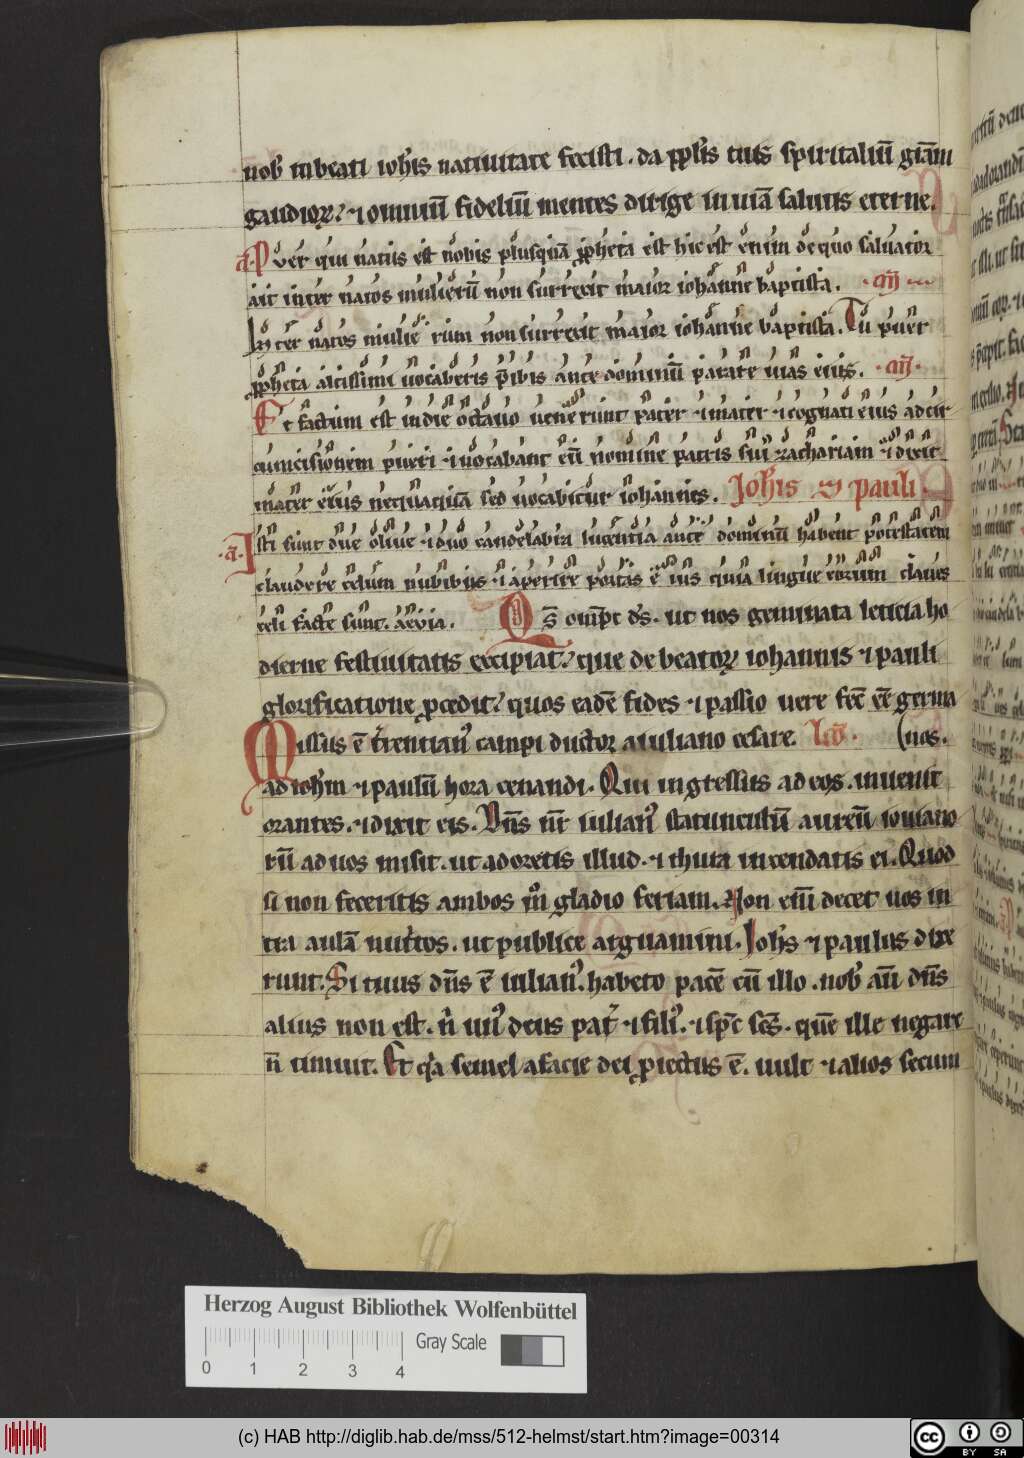 nob̄ in beati ioh̄is natiuitate fecisti. da pp̄lis tuis spiritaliū gr̄am
gaudioꝝ. ⁊ omniū fideliū mentes dirige in uiā salutis eterne.
a. Puer qui natus est nobis plusquā ꝓpheta est hic est enim de quo saluator
ait inter natos mulierū non surrexit maior iohanne baptista.
Inter natos mulierum non surrexit maior iohanne baptista. Tu puer
ꝓpheta altissimi uocaberis p̄ibis ante dominū parare uias eius.
Et factum est in die octauo uenerunt pater ⁊ mater ⁊ cognati eius ad cir
cumcisionem pueri ⁊ uocabant eū nomine patris sui zachariam ⁊ dixit
mater eius nequaquā sed uocabitur iohannes. Ioh̄is ⁊ pauli
a. Isti sunt due oliue ⁊ duo candelabra lucentia ante dominū habent potestatem
claudere celum nubibus ⁊ aperire portas eius quia lingue eorum claues
celi facte sunt. aeuia. Q̄s om̄pt d̄s. ut nos geminata leticia ho
dierne festiuitatis excipiat. que de beatoꝝ iohannis ⁊ pauli
glorificatione ꝓcedit. quos eadē fides ⁊ passio uere fec̄ eē̄ germa
Missus ē t̄rentian᾽ campi ductor a iuliano cesare. (nos.
ad ioh̄m ⁊ paulū hora cenandi. Qui ingressus ad eos. inuenit
orantes. ⁊ dixit eis. Dn̄s nr̄ iulian᾽ statunculū aureū iouiano
rū ad uos misit. ut adoretis illud. ⁊ thura incendatis ei. Quod
si non feceritis ambos m̊ gladio feriam. Non eni̅ decet uos in
tra aulā nut̓tos. ut publice arguamini. Ioh̄s ⁊ paulus dixe
runt. Si tuus dn̄s ē iulian᾽. habeto pacē cū illo. nob̄ aū dn̄s
alius non est. n̓ un᾽ deus pat̓ ⁊ fili᾽. ⁊ sp̄c sc̄s. quē ille negare
n̄ timuit. Et q̓a semel a facie dei ꝓiectus ē. uult ⁊ alios secum
Herzog August Bibliothek Wolfenbüttel
Gray Scale
0 1 2 3 4
(c) HAB http://diglib.hab.de/mss/512-helmst/start.htm?image=00314
cc BY SA